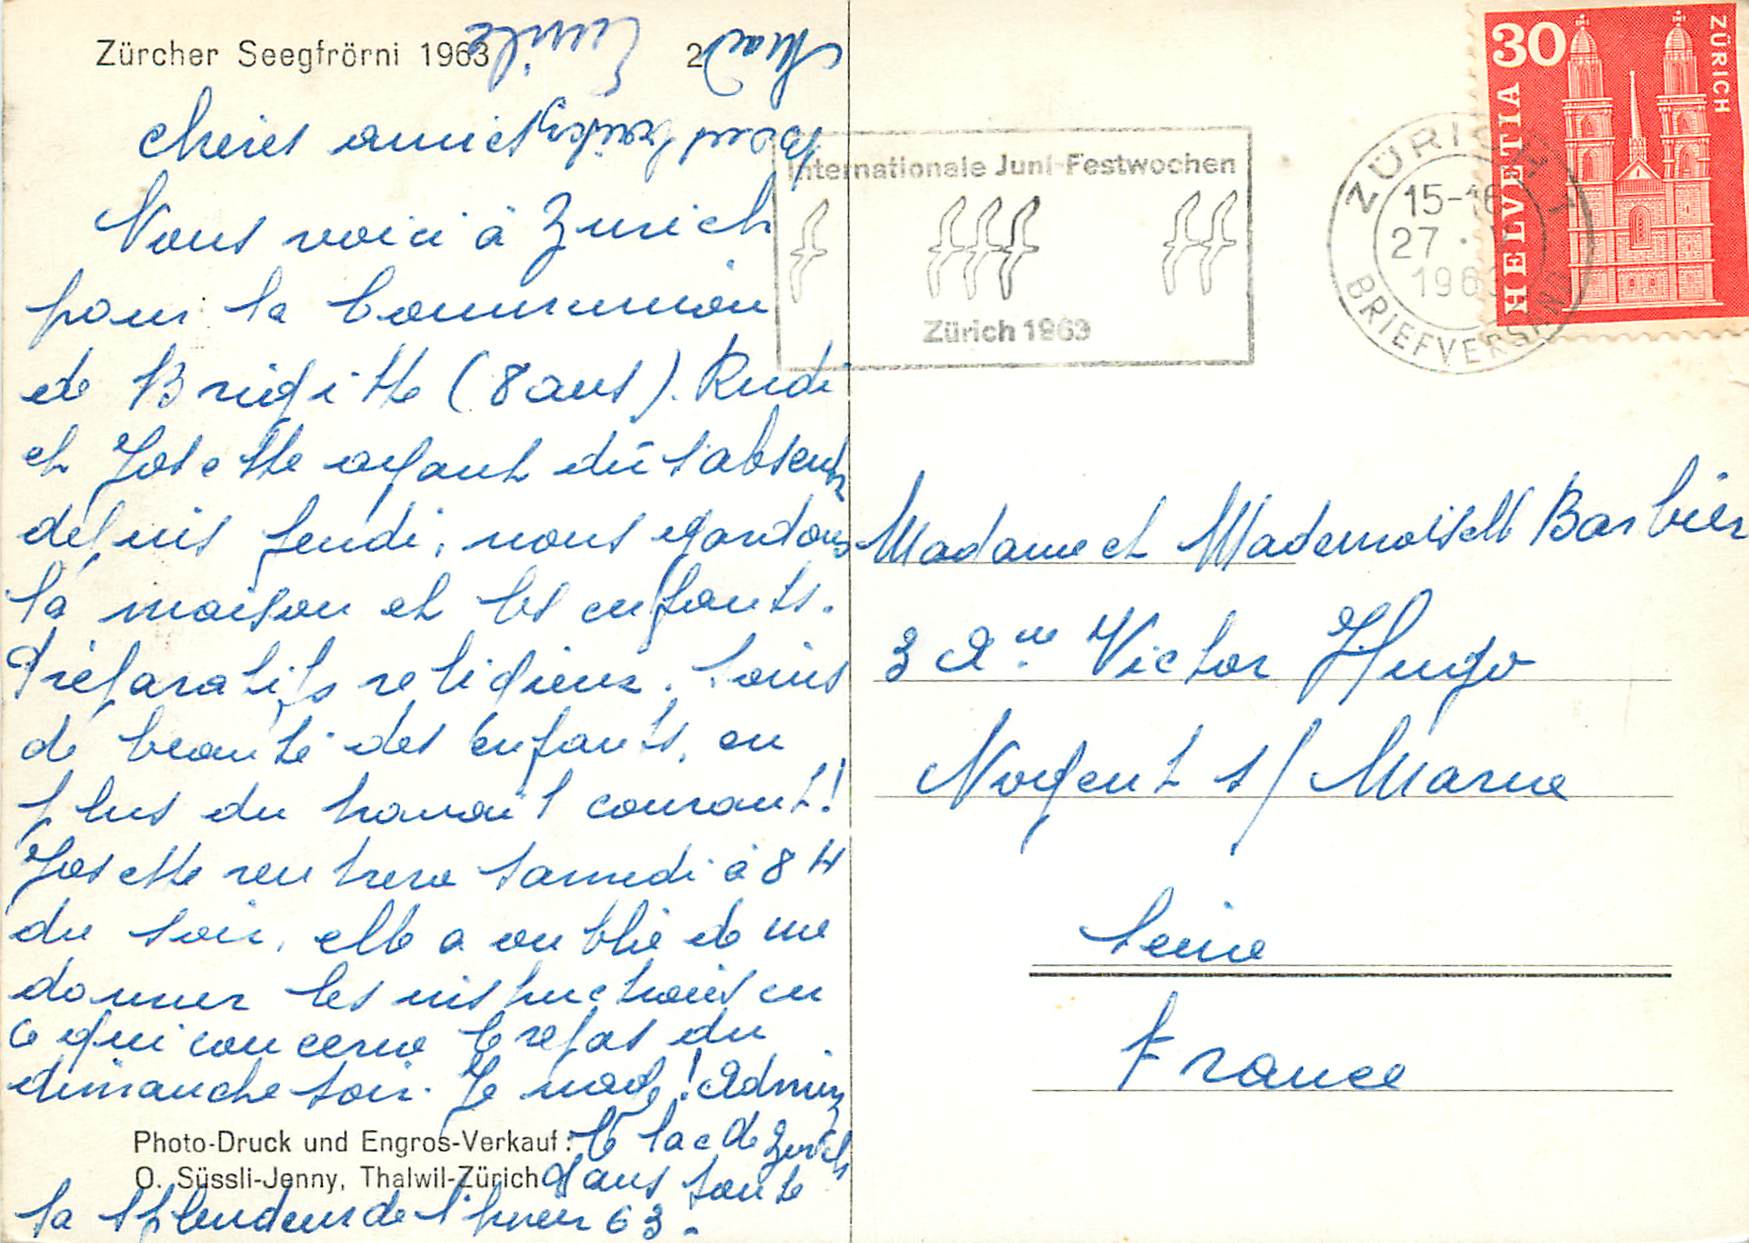 Zürcher Seegfrörni 1963
chères amies
Nous voici à Zurich
pour la Communion
de Brigitte (8 ans). Rudi
et Josette ayant dû s'absenter
depuis jeudi, nous gardons
la maison et les enfants.
Préparatifs religieux. Soins
de beauté des enfants, en
plus du travail courant!
Josette rentrera samedi à 8 H
du soir, elle a oublié de me
donner les instructions en
ce qui concerne le repas du
dimanche soir. Je nage! Admirez
le lac de Zurich
dans toute
la splendeur de l'hiver 63.
Bons baisers
Emile
Photo-Druck und Engros-Verkauf:
O. Süssli-Jenny, Thalwil-Zürich
Internationale Juni-Festwochen
Zürich 1963
ZÜRICH 1
15-16
27
1963
BRIEFVERSAND
30
HELVETIA
ZÜRICH
Madame et Mademoiselle Barbier
3 Aue Victor Hugo
Nogent s/ Marne
Seine
France